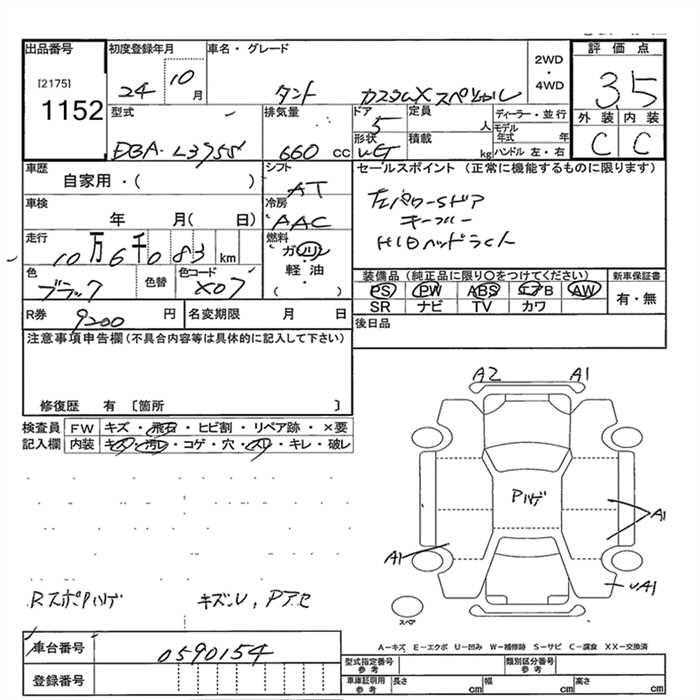 出品番号 初度登録年月 車名・グレード 2WD ・ 4WD 評価点
[2175]
1152
24 10 月 タント カスタムX スペシャル 35
型式 排気量 ドア 定員 ディーラー・並行 外装 内装
5 人 モデル年式 年
DBA-L395S 660 cc 形状 積載 kg ハンドル 左・右 C C
車歴 シフト セールスポイント(正常に機能するものに限ります)
自家用・( ) AT
左パワーSドア
車検 冷房 キーフリー
年 月(日) AAC
走行 燃料 HIDヘッドライト
10万6千083 km ガソリン
軽・油
( )
色 色替 色コード 装備品(純正品に限り○をつけてください) 新車保証書
ブラック X07 PS PW ABS エアB AW 有・無
SR ナビ TV カワ
R券 9200 円 名変期限 月 日 後日品
注意事項申告欄(不具合内容等は具体的に記入して下さい)
修復歴 有〔箇所 〕
検査員 FW キズ・飛石・ヒビ割・リペア跡・×要
記入欄 内装 キズ・汚レ・コゲ・穴・スリ・キレ・破レ
A2 A1
Pハゲ
A1
A1
UA1
Rスポイハゲ キズU,Pアセ
スペア
A-キズ E-エクボ U-凹み W-補修跡 S-サビ C-腐食 XX-交換済
車台番号 0590154
型式指定番号 参考 類別区分番号 参考
登録番号 車庫証明用 参考 長さ cm 幅 cm 高さ cm